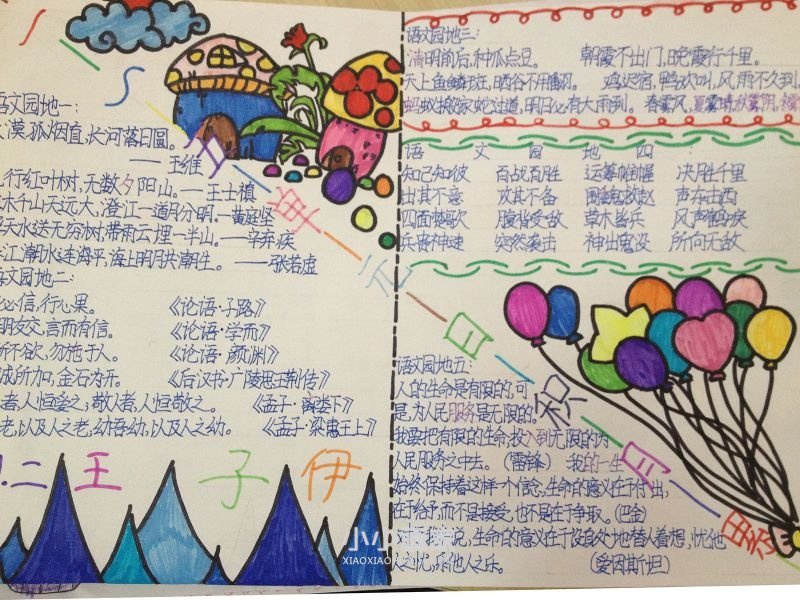 语文园地一:
大漠孤烟直,长河落日圆。
——王维
行红叶树,无数夕阳山。——王士禛
木千山天远大,澄江一道月分明。—黄庭坚
天水送无穷树,带雨云埋一半山。——辛弃疾
江潮水连海平,海上明月共潮生。——张若虚
语文园地二:
必信,行必果。 《论语·子路》
朋友交,言而有信。 《论语·学而》
所不欲,勿施于人。 《论语·颜渊》
诚所加,金石为开。 《后汉书·广陵思王荆传》
者,人恒爱之;敬人者,人恒敬之。 《孟子·离娄下》
老,以及人之老,幼吾幼,以及人之幼。 《孟子·梁惠王上》
二 王 子 伊
语文园地三:
清明前后,种瓜点豆。 朝霞不出门,晚霞行千里。
天上鱼鳞斑,晒谷不用翻。 鸡迟宿,鸭欢叫,风雨不久到
蚂蚁搬家蛇过道,明日必有大雨到。 春雾风,夏雾晴,秋雾阴,
语 文 园 地 四:
知己知彼 百战百胜 运筹帷幄 决胜千里
出其不意 攻其不备 围魏救赵 声东击西
四面楚歌 腹背受敌 草木皆兵 风声鹤唳
兵贵神速 突然袭击 神出鬼没 所向无敌
语文园地五:
人的生命是有限的,可
是,为人民服务是无限的,
我要把有限的生命,投入到无限的为
人民服务之中去。(雷锋) 我的一生
始终保持着这样一个信念,生命的意义在于付出,
在于给予,而不是接受,也不是在于争取。(巴金)
我说,生命的意义在于设身处地替人着想,忧他
人之忧,乐他人之乐。 (爱因斯坦)
单元日积月累
XIAOXIAO